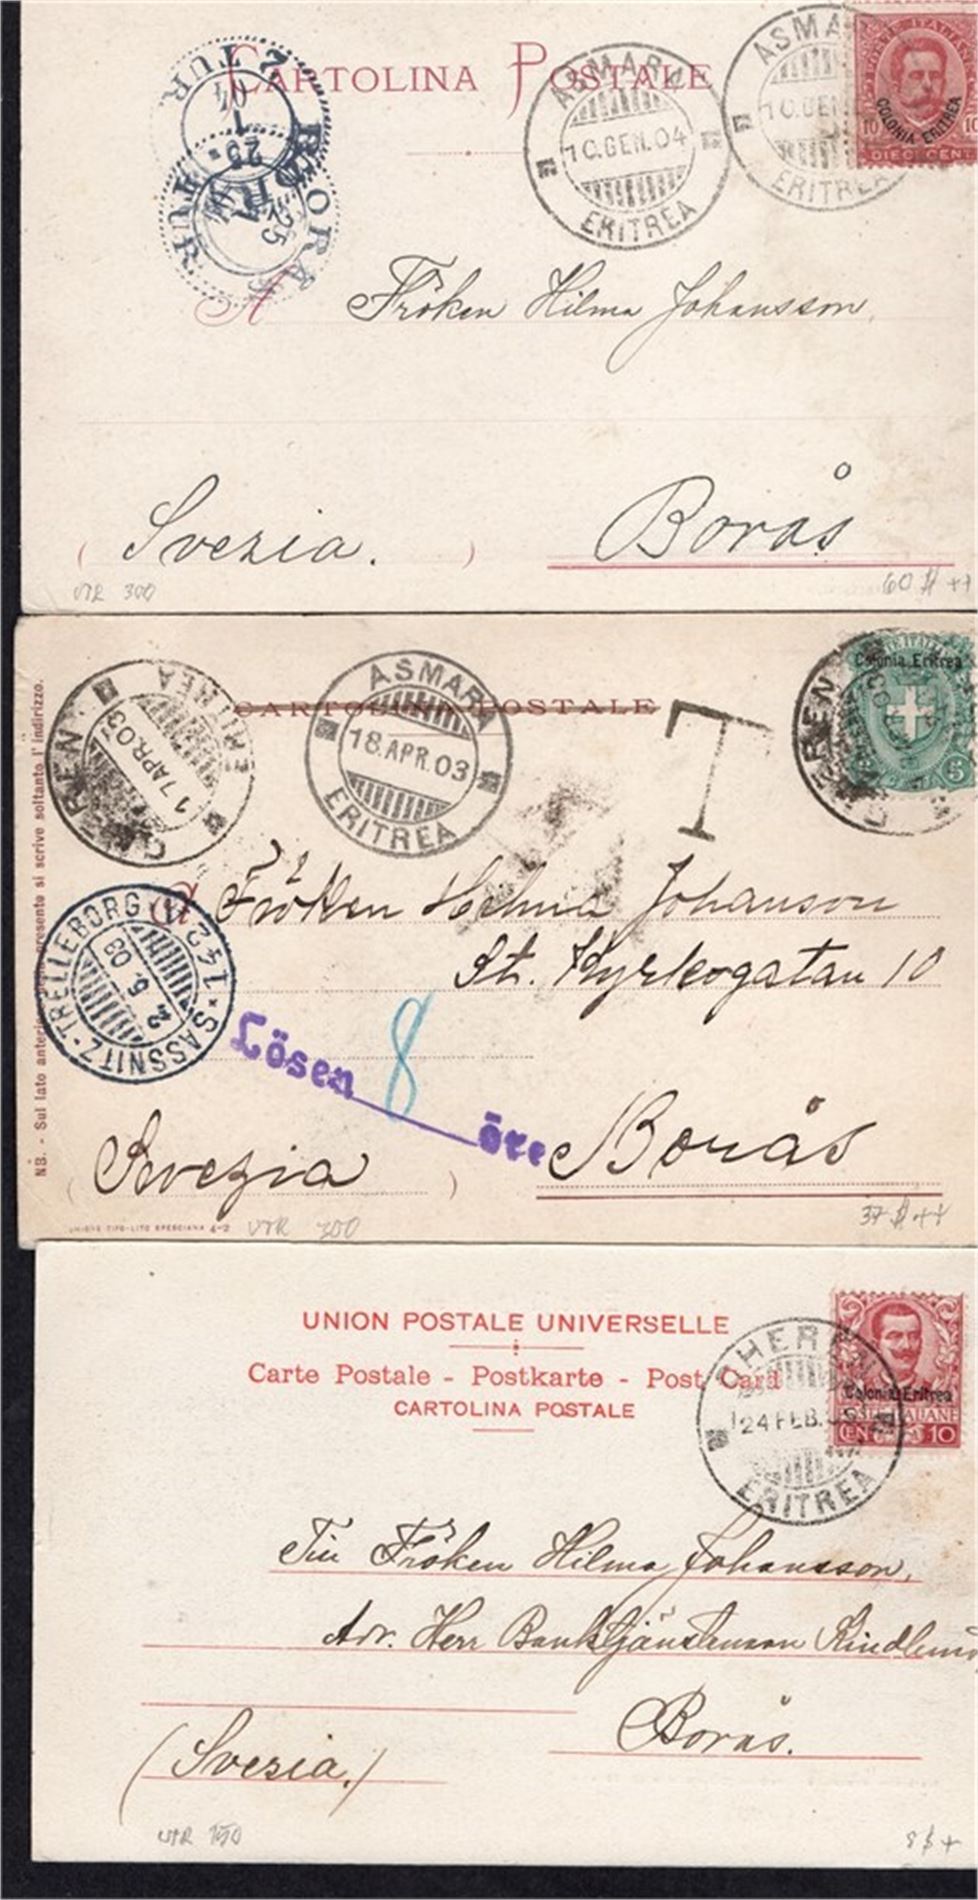 CARTOLINA POSTALE
ASMARA
10.GEN.04
ERITREA
ASMA
10.GEN
ERITREA
POSTE ITALIANE
COLONIA ERITREA
10 10
DIECI CENT
BORÅS
TUR
25
1
04
A Fröken Hilma Johansson,
Borås
( Svezia. )
300
60 $ ++
NB. - Sul lato anteriore della presente si scrive soltanto l'indirizzo.
CARTOLINA POSTALE
CHEREN
17 APR.03
ERITREA
ASMARA
18.APR.03
ERITREA
T
CHEREN
Colonia Eritrea
5
A Fröken Helma Johanson
St. Kyrkogatan 10
SASSNITZ-TRELLEBORG
142
5. 03
Lösen 8 öre
Borås
( Svezia )
UNIONE TIPO-LITO BRESCIANA 4-2
300
37 $ ++
UNION POSTALE UNIVERSELLE
Carte Postale - Postkarte - Post Card
CARTOLINA POSTALE
CHEREN
24 FEB.
ERITREA
Colonia Eritrea
POSTE ITALIANE
CEN 10
Till Fröken Hilma Johansson,
Adr. Herr Banktjänsteman Kindlund
Borås.
(Svezia.)
150
8 $ +